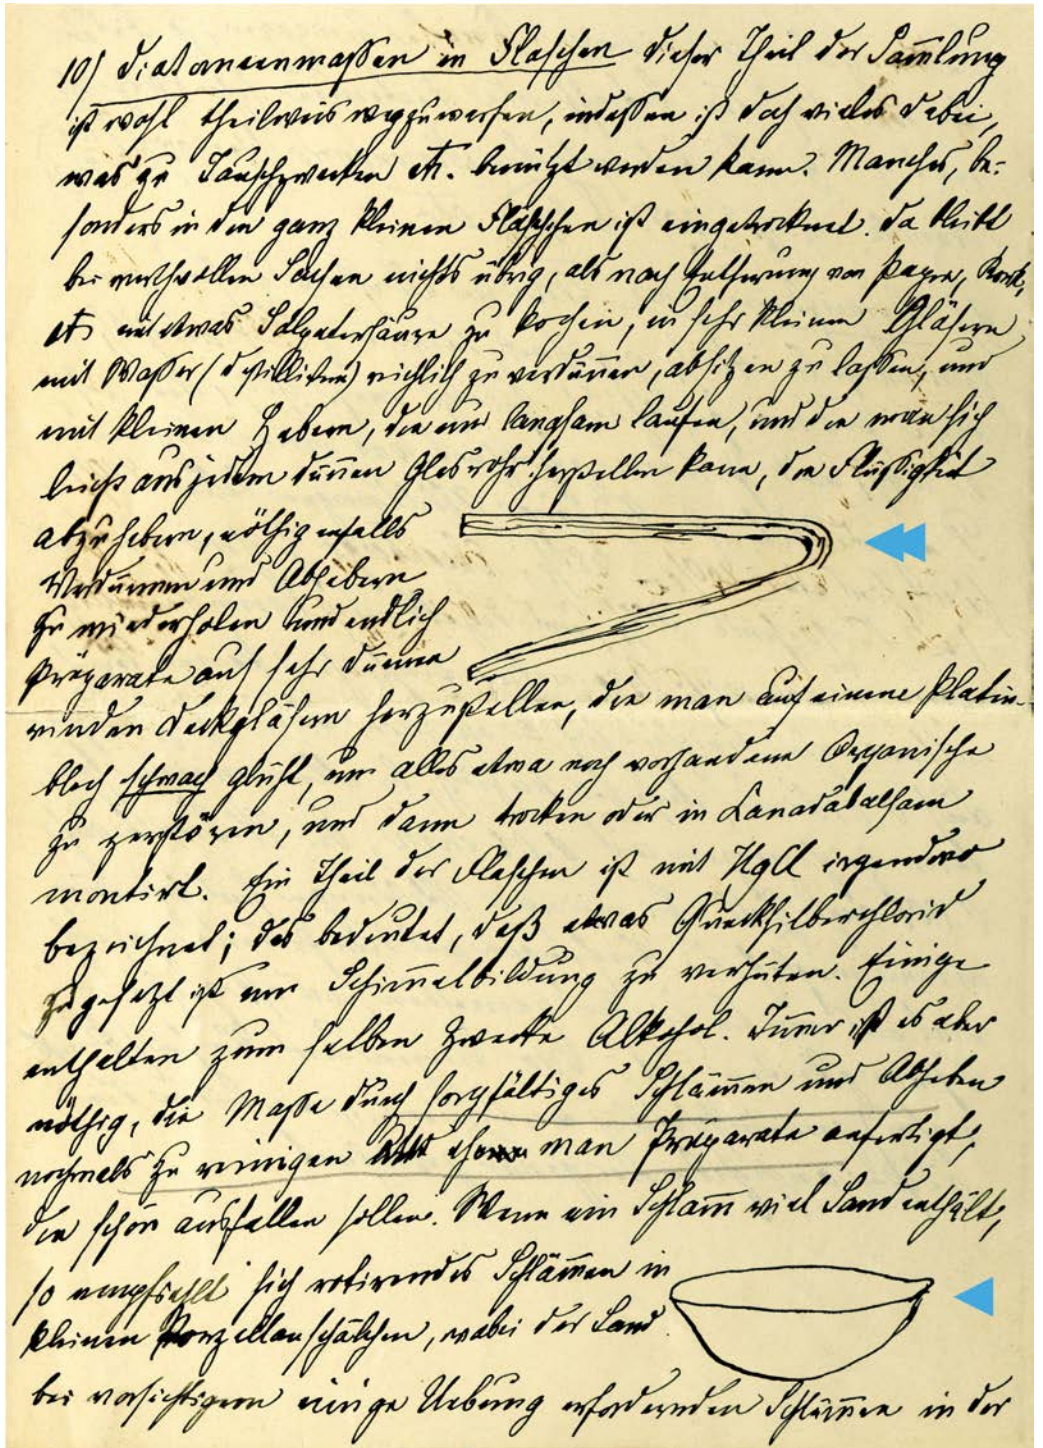 10) Diatomeenmassen in Flaschen dieser Theil der Sam̅lung
ist wohl theilweis wegzuwerfen, indessen ist doch vieles dabei,
was zu Tauschzwecken etc. benützt werden kann. Manches, be-
sonders in den ganz kleinen Fläschchen ist eingetrocknet. Da bleibt
bei werthvollen Sachen nichts übrig, als nach Entfernung von Papier, Kork,
etc mit etwas Salpetersäure zu kochen, in sehr kleinen Gläsern
mit Wasser (destillirtem) reichlich zu verdün̅en, absitzen zu lassen, und
mit kleinen Hebern, die nur langsam laufen, und die man sich
leicht aus jedem dün̅en Glasrohr herstellen kann, die Flüssigkeit
abzuhebern, nöthigenfalls
Verdün̅en und Abhebern
zu wiederholen und endlich
Präparate auf sehr dünne
runden Deckgläsern herzustellen, die man auf einem Platin-
blech schwach glüht, um alles etwa noch vorhandene Organische
zu zerstören, und dann trocken oder in Canadabalsam
montirt. Ein Theil der Flaschen ist mit HgCl irgendwo
bezeichnet; das bedeutet, daß etwas Quecksilberchlorid
zugesetzt ist um Schim̅elbildung zu verhüten. Einige
enthalten zum selben Zwecke Alkohol. Im̅er ist es aber
nöthig, die Masse durch sorgfältiges Schläm̅en und Abheben
nochmals zu reinigen ehe man Präparate anfertigt,
die schön ausfallen sollen. Wenn ein Schlam̅ viel Sand enthält,
so empfiehlt sich rotirendes Schläm̅en in
kleinen Porzellanschälchen, wobei der Sand
bei vorsichtigem einige Uebung erfordernden Schläm̅en in der